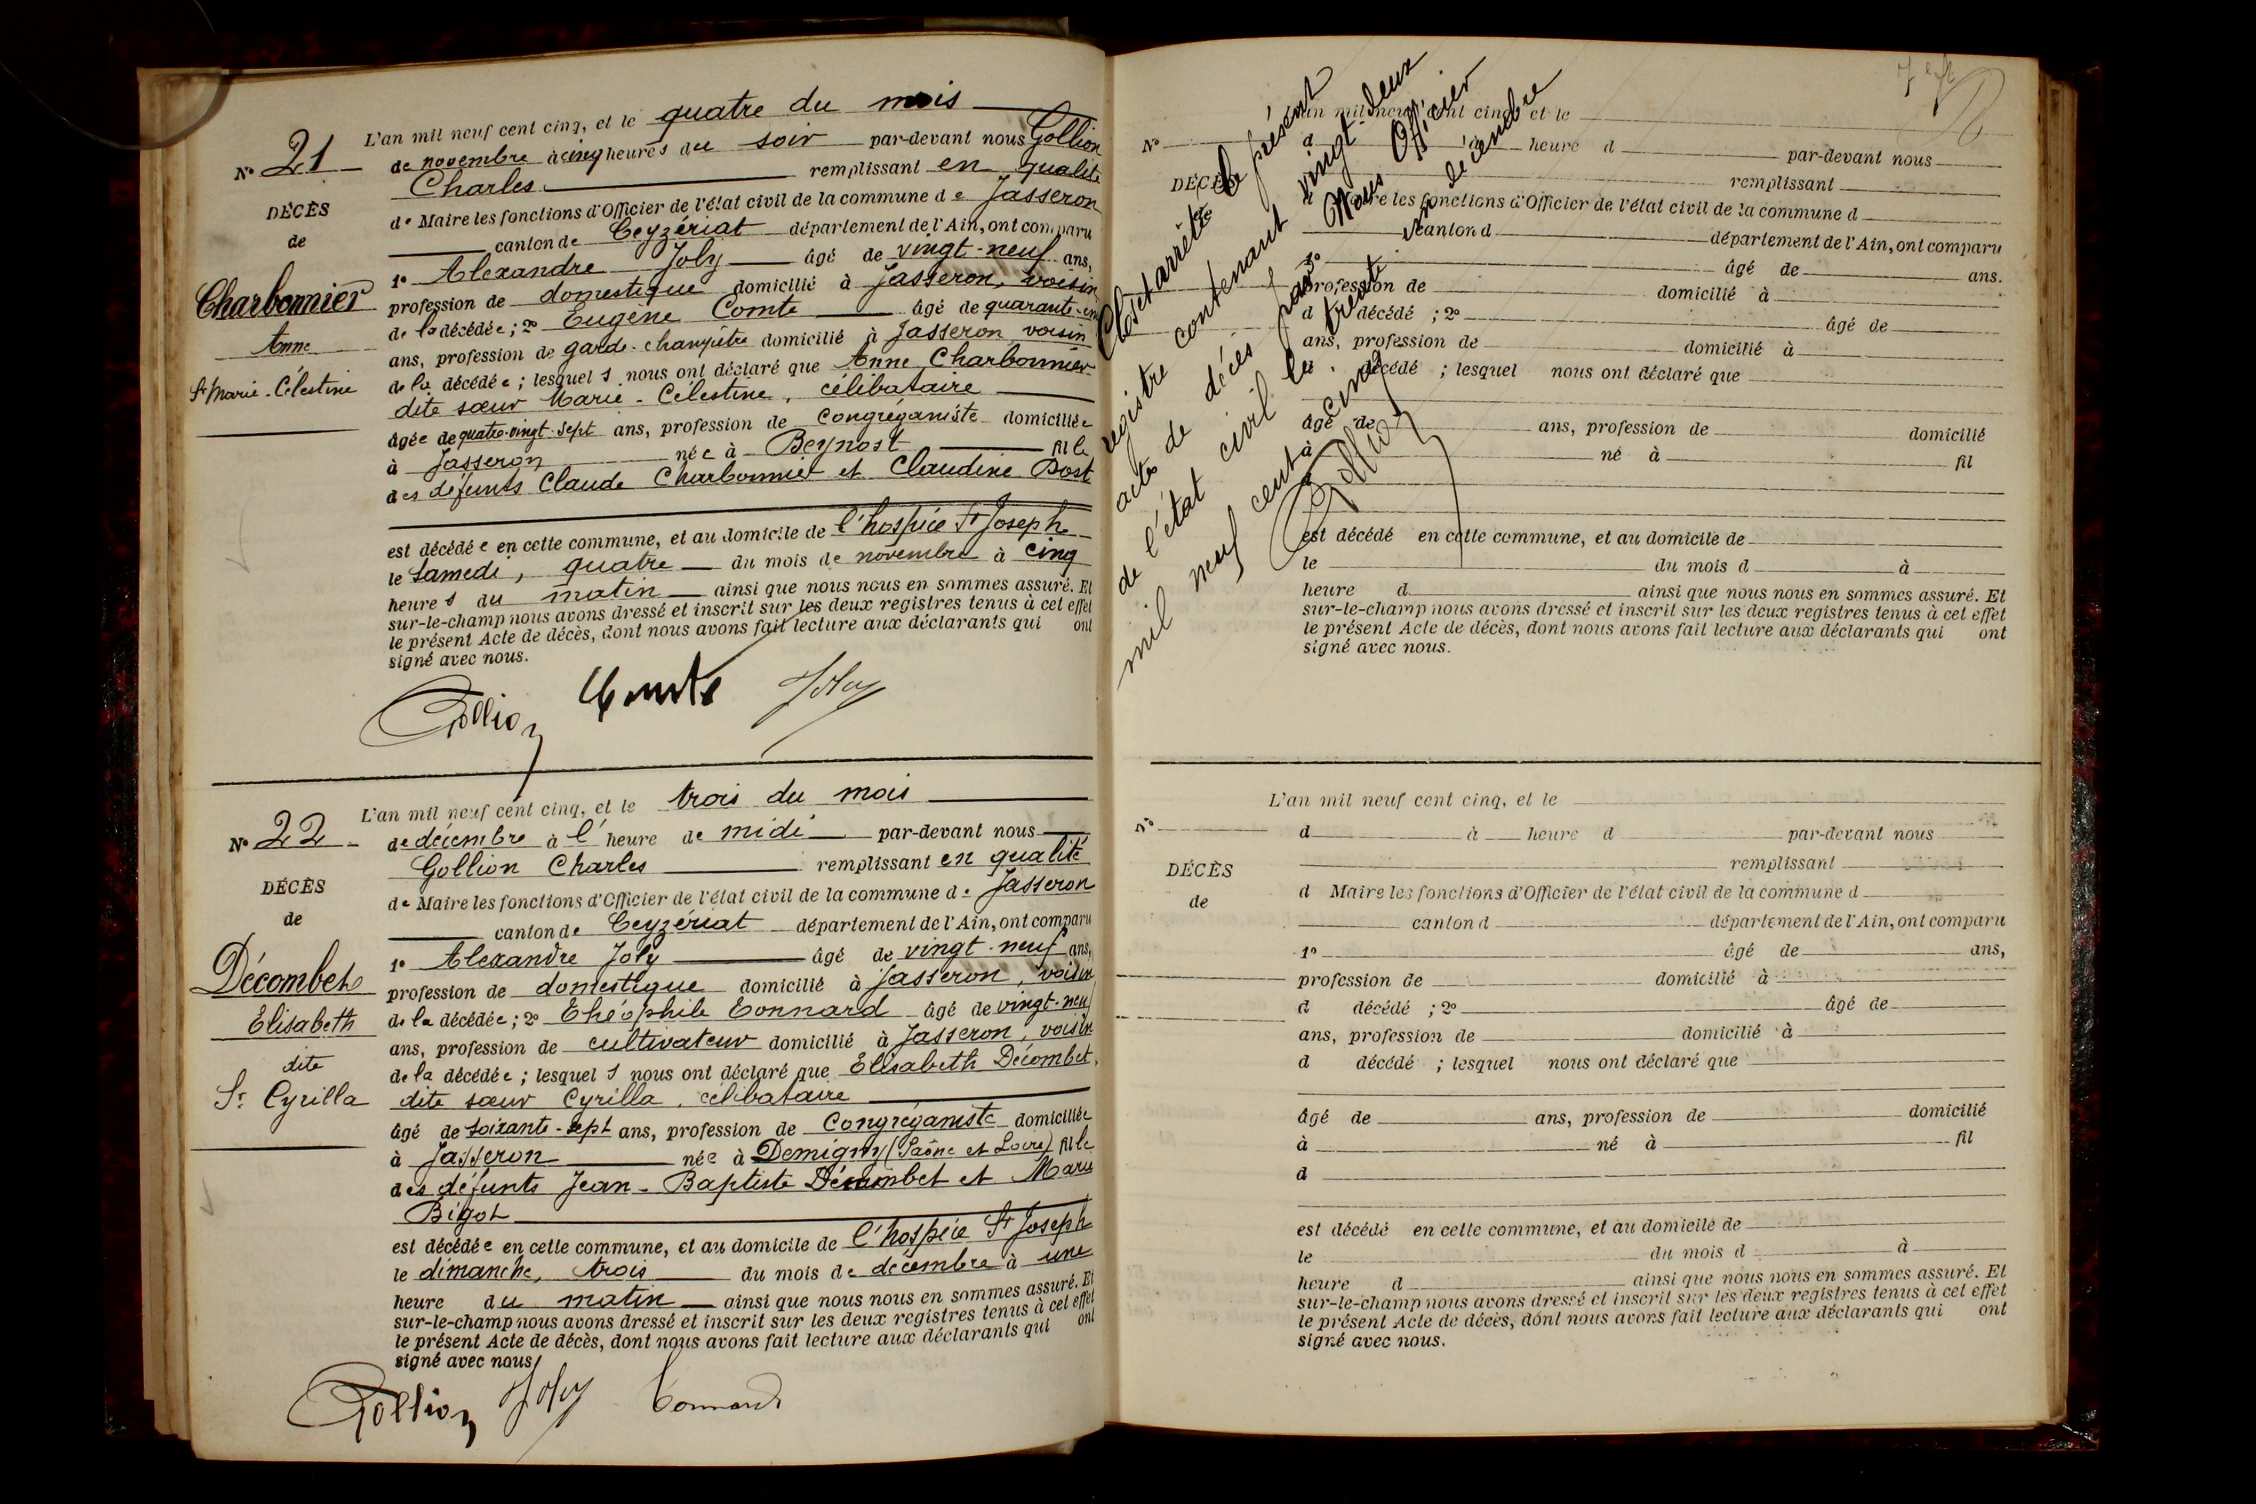 L'an mil neuf cent cinq, et le quatre du mois
N° 21
de novembre à cinq heures du soir par-devant nous Gollion
Charles remplissant en qualité
de Maire les fonctions d'Officier de l'état civil de la commune de Jasseron
canton de Ceyzériat département de l'Ain, ont comparu
1° Alexandre Joly âgé de vingt-neuf ans,
profession de domestique domicilié à Jasseron, voisin
de la décédée ; 2° Eugène Comte âgé de quarante-un
ans, profession de garde-champêtre domicilié à Jasseron voisin
de la décédée ; lesquels nous ont déclaré que Anne Charbonnier
dite sœur Marie-Célestine, célibataire
âgée de quatre-vingt-sept ans, profession de congréganiste domiciliée
à Jasseron née à Beynost fille
des défunts Claude Charbonnier et Claudine Bost
est décédée en cette commune, et au domicile de l'hospice St Joseph
le samedi, quatre du mois de novembre à cinq
heures du matin ainsi que nous nous en sommes assuré. Et
sur-le-champ nous avons dressé et inscrit sur les deux registres tenus à cet effet
le présent Acte de décès, dont nous avons fait lecture aux déclarants qui ont
signé avec nous.
DÉCÈS
de
Charbonnier
Anne
Sr Marie-Célestine
Gollion Comte Joly
L'an mil neuf cent cinq, et le trois du mois
N° 22
de décembre à l'heure de midi par-devant nous
Gollion Charles remplissant en qualité
de Maire les fonctions d'Officier de l'état civil de la commune de Jasseron
canton de Ceyzériat département de l'Ain, ont comparu
1° Alexandre Joly âgé de vingt-neuf ans,
profession de domestique domicilié à Jasseron, voisin
de la décédée ; 2° Théophile Tonnard âgé de vingt-neuf
ans, profession de cultivateur domicilié à Jasseron, voisin
de la décédée ; lesquels nous ont déclaré que Elisabeth Décombet,
dite sœur Cyrilla, célibataire
âgé de soixante-sept ans, profession de Congréganiste domiciliée
à Jasseron née à Demigny (Saône et Loire) fille
des défunts Jean-Baptiste Décombet et Marie
Bigot
est décédée en cette commune, et au domicile de l'hospice St Joseph
le dimanche, trois du mois de décembre à une
heure du matin ainsi que nous nous en sommes assuré. Et
sur-le-champ nous avons dressé et inscrit sur les deux registres tenus à cet effet
le présent Acte de décès, dont nous avons fait lecture aux déclarants qui ont
signé avec nous
DÉCÈS
de
Décombet
Elisabeth
dite
Sr Cyrilla
Gollion Joly Tonnard
Clos et arrêté le présent
registre contenant vingt-deux
actes de décès par Nous Officier
de l'état civil le trente un décembre
mil neuf cent cinq
Gollion
an mil neuf cent cinq, et le
N° d à heure d par-devant nous
DÉCÈS remplissant
de Maire les fonctions d'Officier de l'état civil de la commune d
canton d département de l'Ain, ont comparu
1° âgé de ans.
profession de domicilié à
d décédé ; 2° âgé de
ans, profession de domicilié à
d décédé ; lesquel nous ont déclaré que
âgé de ans, profession de domicilié
à né à fil
est décédé en cette commune, et au domicile de
le du mois d à
heure d ainsi que nous nous en sommes assuré. Et
sur-le-champ nous avons dressé et inscrit sur les deux registres tenus à cet effet
le présent Acte de décès, dont nous avons fait lecture aux déclarants qui ont
signé avec nous.
L'an mil neuf cent cinq, et le
N° d à heure d par-devant nous
remplissant
DÉCÈS
de
d Maire les fonctions d'Officier de l'état civil de la commune d
canton d département de l'Ain, ont comparu
1° âgé de ans,
profession de domicilié à
d décédé ; 2° âgé de
ans, profession de domicilié à
d décédé ; lesquel nous ont déclaré que
âgé de ans, profession de domicilié
à né à fil
d
est décédé en cette commune, et au domicile de
le du mois d à
heure d ainsi que nous nous en sommes assuré. Et
sur-le-champ nous avons dressé et inscrit sur les deux registres tenus à cet effet
le présent Acte de décès, dont nous avons fait lecture aux déclarants qui ont
signé avec nous.